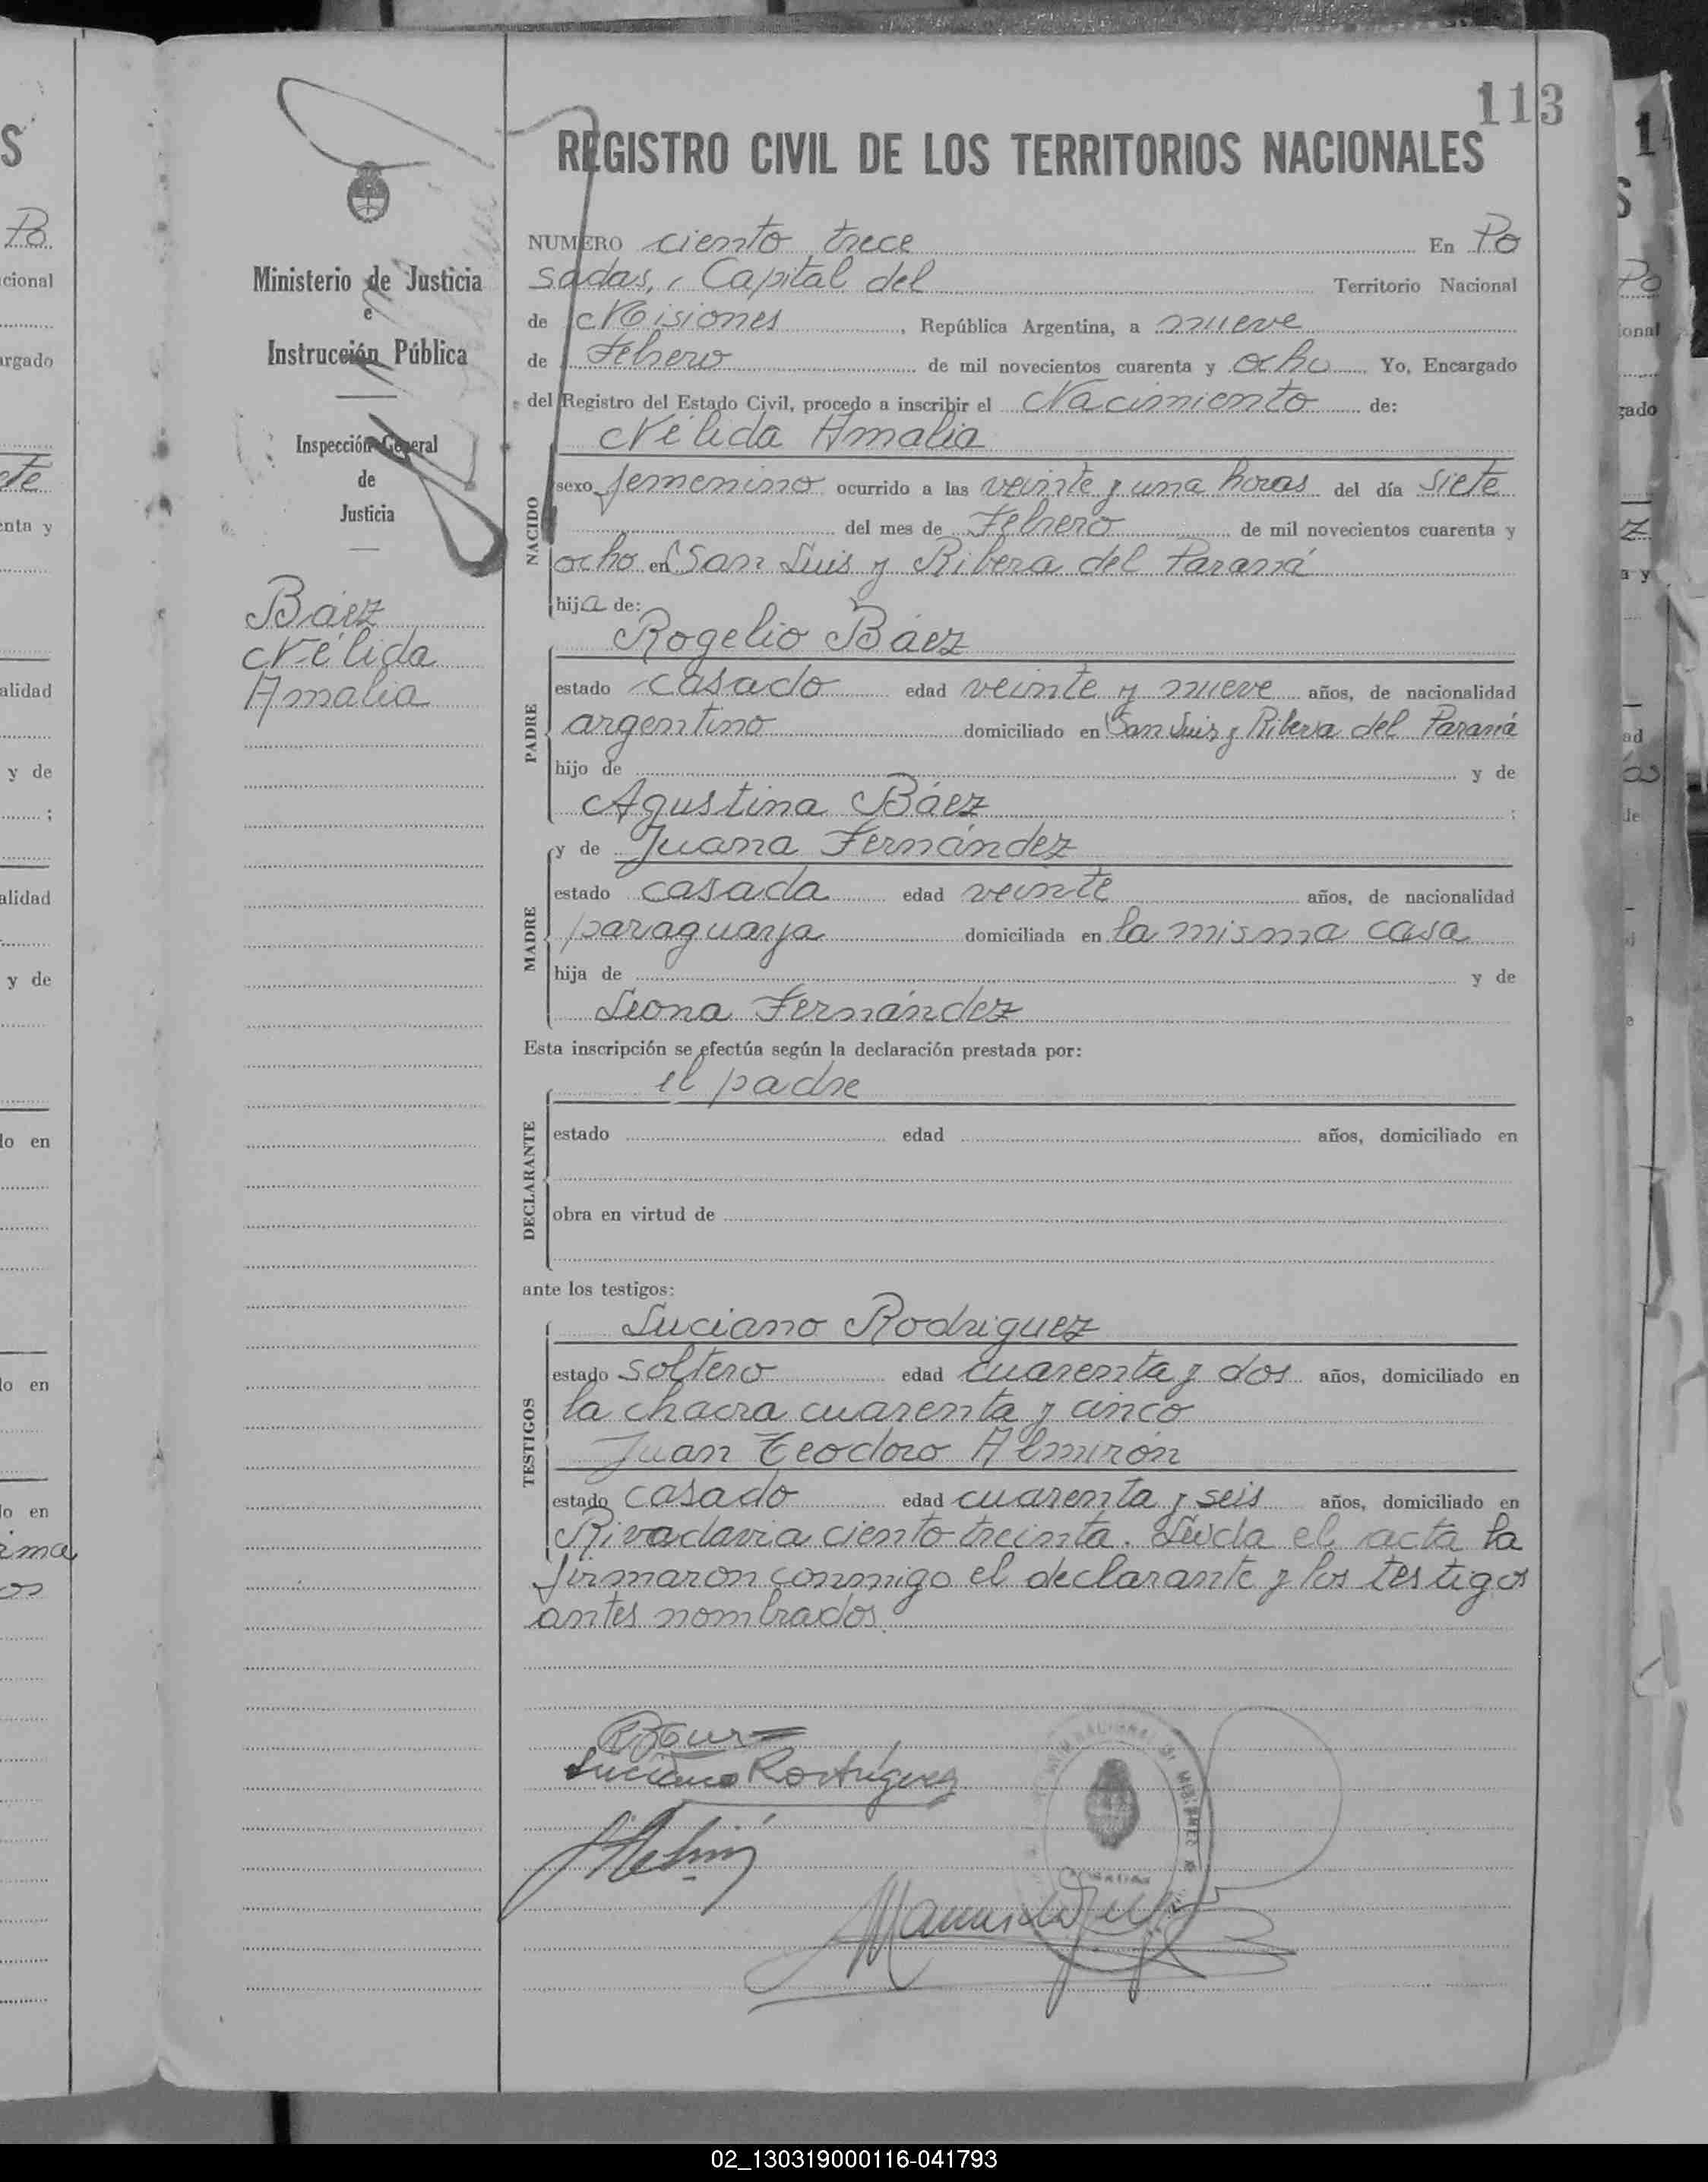 113
REGISTRO CIVIL DE LOS TERRITORIOS NACIONALES
Ministerio de Justicia
e
Instrucción Pública
Inspección General
de
Justicia
Báez
Nélida
Amalia
NUMERO ciento trece En Po
sadas, Capital del Territorio Nacional
de Misiones, República Argentina, a nueve
de Febrero de mil novecientos cuarenta y ocho Yo, Encargado
del Registro del Estado Civil, procedo a inscribir el Nacimiento de:
Nélida Amalia
NACIDO
sexo femenino ocurrido a las veinte y una horas del día siete
del mes de Febrero de mil novecientos cuarenta y
ocho en San Luis y Ribera del Paraná
hija de:
Rogelio Báez
PADRE
estado casado edad veinte y nueve años, de nacionalidad
argentino domiciliado en San Luis y Ribera del Paraná
hijo de y de
Agustina Báez ;
y de Juana Fernández
MADRE
estado casada edad veinte años, de nacionalidad
paraguaya domiciliada en la misma casa
hija de y de
Leona Fernández
Esta inscripción se efectúa según la declaración prestada por:
el padre
DECLARANTE
estado edad años, domiciliado en
obra en virtud de
ante los testigos:
Luciano Rodriguez
TESTIGOS
estado soltero edad cuarenta y dos años, domiciliado en
la chacra cuarenta y cinco
Juan Teodoro Almirón
estado casado edad cuarenta y seis años, domiciliado en
Rivadavia ciento treinta. Leída el acta la
firmaron conmigo el declarante y los testigos
antes nombrados.
Luciano Rodríguez
02_130319000116-041793